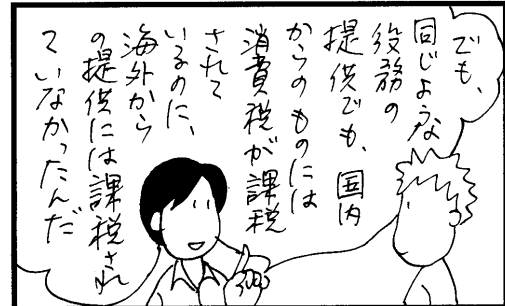 でも、
同じような
役務の
提供でも、国内
からのものには
消費税が課税
されて
いるのに、
海外から
の提供には課税され
ていなかったんだ